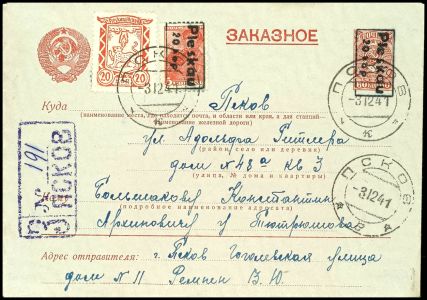 ЗАКАЗНОЕ
20 20
Pleskau
20 kop
Pleskau
20 kop
ПСКОВ
-31241
ПСКОВ
-31241
Куда Псков
(наименование места, где находится почта, и области или края, а для станций—
наименование железной дороги)
ул. Адольфа Гитлера
(район село или деревня)
дом № 48а кв 3
(улица, № дома и квартиры)
Большакову Константин
(подробное наименование адресата)
ПСКОВ
-31241
№ 191
ПСКОВ
Адрес отправителя: г. Псков Гоголевская улица
дом № 11 В. Ю.